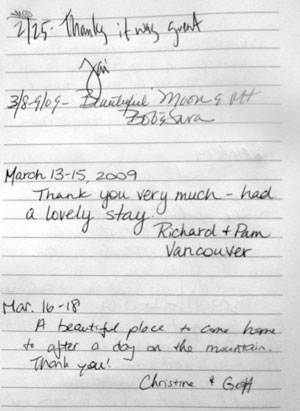 2/25. Thanks it was great
3/8-9/09- Beautiful Moon & Mt
Bob & Sara
March 13-15, 2009
Thank you very much - had
a lovely stay.
Richard + Pam
Vancouver
Mar. 16-18
A beautiful place to come home
to after a day on the mountain.
Thank you!
Christine & Geoff